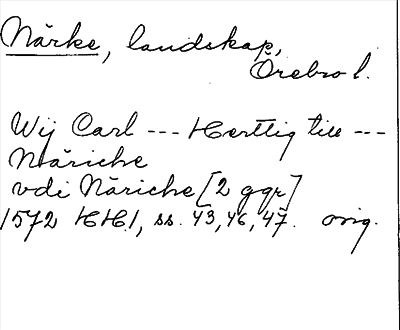 Närke, landskap,
Örebro l.
Wij Carl --- Herttig till ---
Näriche
vdi Näriche [2 ggr]
1572 HH1, ss. 43, 46, 47. orig.